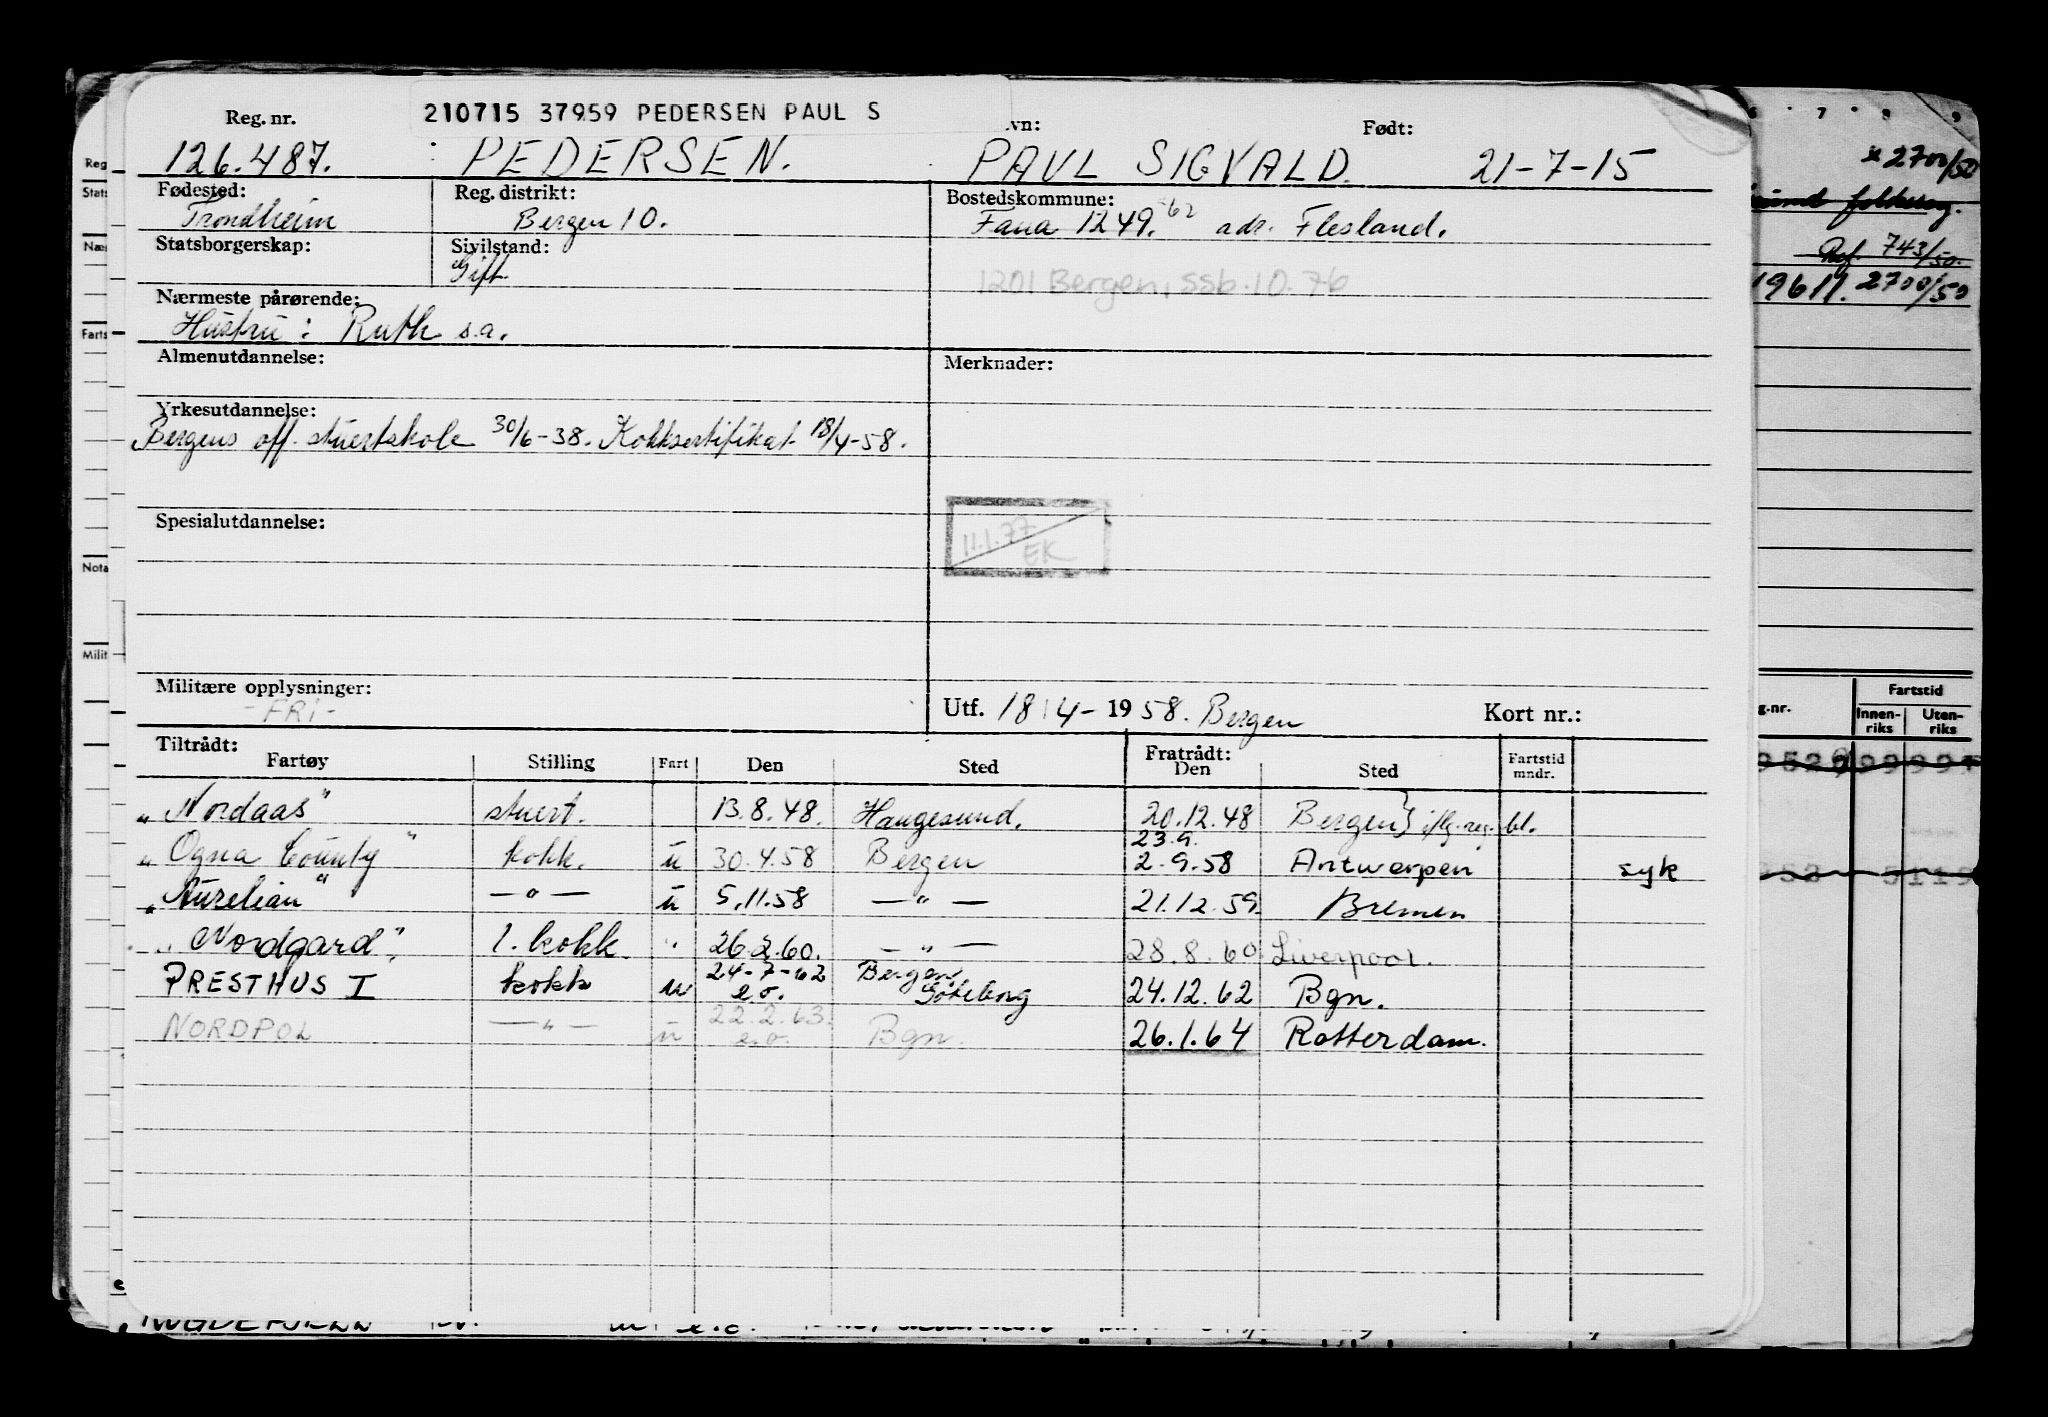 210715 37959 PEDERSEN PAUL S
Reg. nr. vn: Født:
126.487. PEDERSEN. PAUL SIGVALD. 21-7-15
Fødested: Reg. distrikt: Bostedskommune:
Trondheim Bergen 10. Fana 1249. -62 adr. Flesland.
Statsborgerskap: Sivilstand:
Gift
1201 Bergen, ssb. 10.76
Nærmeste pårørende:
Hustru: Ruth s.a.
Almenutdannelse: Merknader:
Yrkesutdannelse:
Bergens off. stuertskole 30/6-38. Kokksertifikat 18/4-58.
Spesialutdannelse:
11.1.77
EK
Militære opplysninger:
-FRI-
Utf. 18/4-1958. Bergen Kort nr.:
Tiltrådt: Fratrådt:
Fartøy Stilling Fart Den Sted Den Sted Fartstid mndr.
"Nordaas" stuert. 13.8.48. Haugesund. 20.12.48 Bergen} iflg. reg. bl.
23.9.
"Ogna County" kokk. u 30.4.58 Bergen 2.9.58 Antwerpen syk
"Aurelian" —"— u 5.11.58 —"— 21.12.59. Bremen
"Nordgard". 1. kokk. " 26.2.60. —"— 28.8.60 Liverpool.
PRESTHUS I kokk u 24-7-62 e.o. Bergen, Göteborg 24.12.62 Bgn.
NORDPOL —"— u 22.2.63. e.o. Bgn. 26.1.64 Rotterdam.
Reg
Stats
Næs
Farts
Nota
Milit
6 7 8 9
x 2700/50
Ref. 743/50.
19611. 2700/50
g.nr. Fartstid
Innen-riks Uten-riks